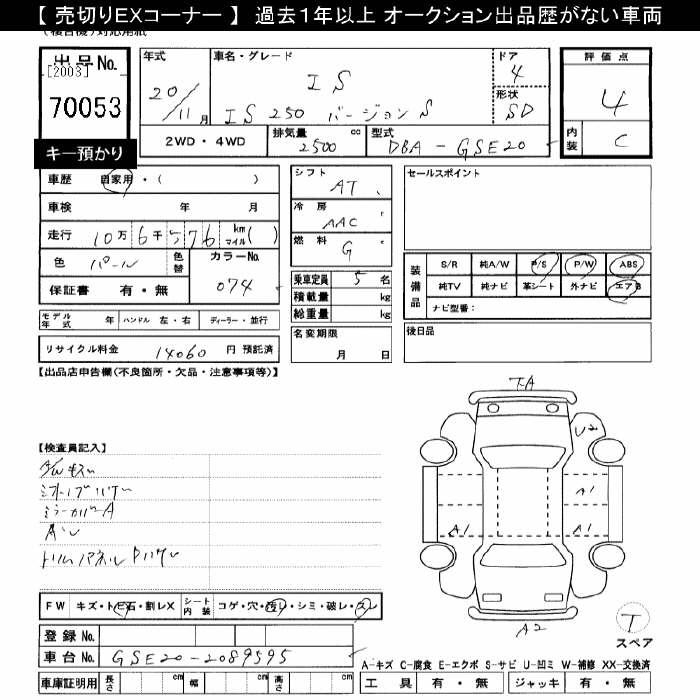 【 売切りEXコーナー 】 過去1年以上 オークション出品歴がない車両
出品 No.
[2003]
70053
キー預かり
年式
20/11月
車名・グレード
IS
IS 250 バージョンS
ドア
4
形状
SD
評価点
4
内装
C
2WD・4WD
排気量
2500 cc
型式
DBA-GSE20
車歴 自家用・( )
車検 年 月
走行 10万 6千 576 km マイル ( )
色 パール 色替 カラーNo. 074
保証書 有・無
モデル年式 年 ハンドル 左・右 ディーラー・並行
リサイクル料金 14060 円 預託済
シフト AT
冷房 AAC
燃料 G
乗車定員 5 名
積載量 kg
総重量 kg
名変期限
月 日
セールスポイント
装備品
S/R 純A/W P/S P/W ABS
純TV 純ナビ 革シート 外ナビ エアB
ナビ型番：
後日品
【出品店申告欄(不良箇所・欠品・注意事項等)】
【検査員記入】
ミラーカバーA
T-A
U2
A1
A1
A1
A2
T
スペア
FW キズ・トビ石・割レX シート内装 コゲ・穴・汚レ・シミ・破レ・スレ
登録 No.
車台 No. GSE20-2089595
車庫証明用 長さ cm 幅 cm 高さ cm
A-キズ C-腐食 E-エクボ S-サビ U-凹ミ W-補修 XX-交換済
工具 有・無 ジャッキ 有・無